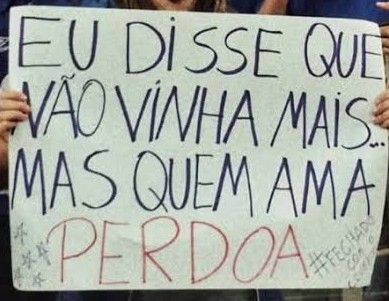 EU DISSE QUE
NÃO VINHA MAIS...
MAS QUEM AMA
PERDOA
#FECHADO
COM O